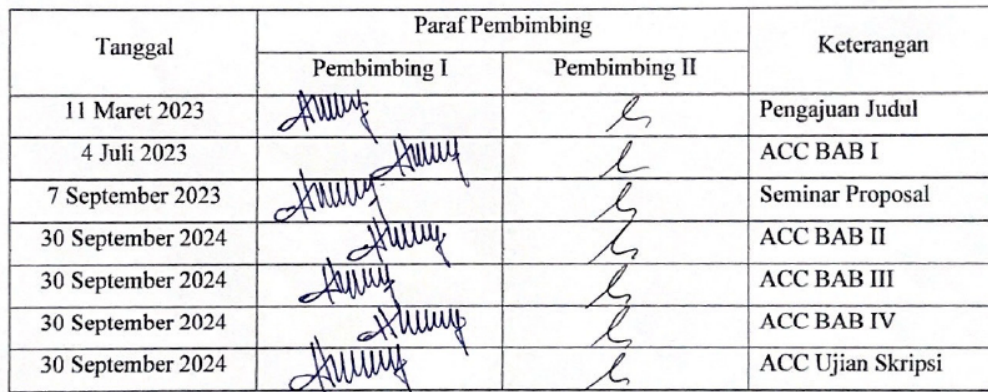 Tanggal
Paraf Pembimbing
Keterangan
Pembimbing I
Pembimbing II
11 Maret 2023 Pengajuan Judul
4 Juli 2023 ACC BAB I
7 September 2023 Seminar Proposal
30 September 2024 ACC BAB II
30 September 2024 ACC BAB III
30 September 2024 ACC BAB IV
30 September 2024 ACC Ujian Skripsi